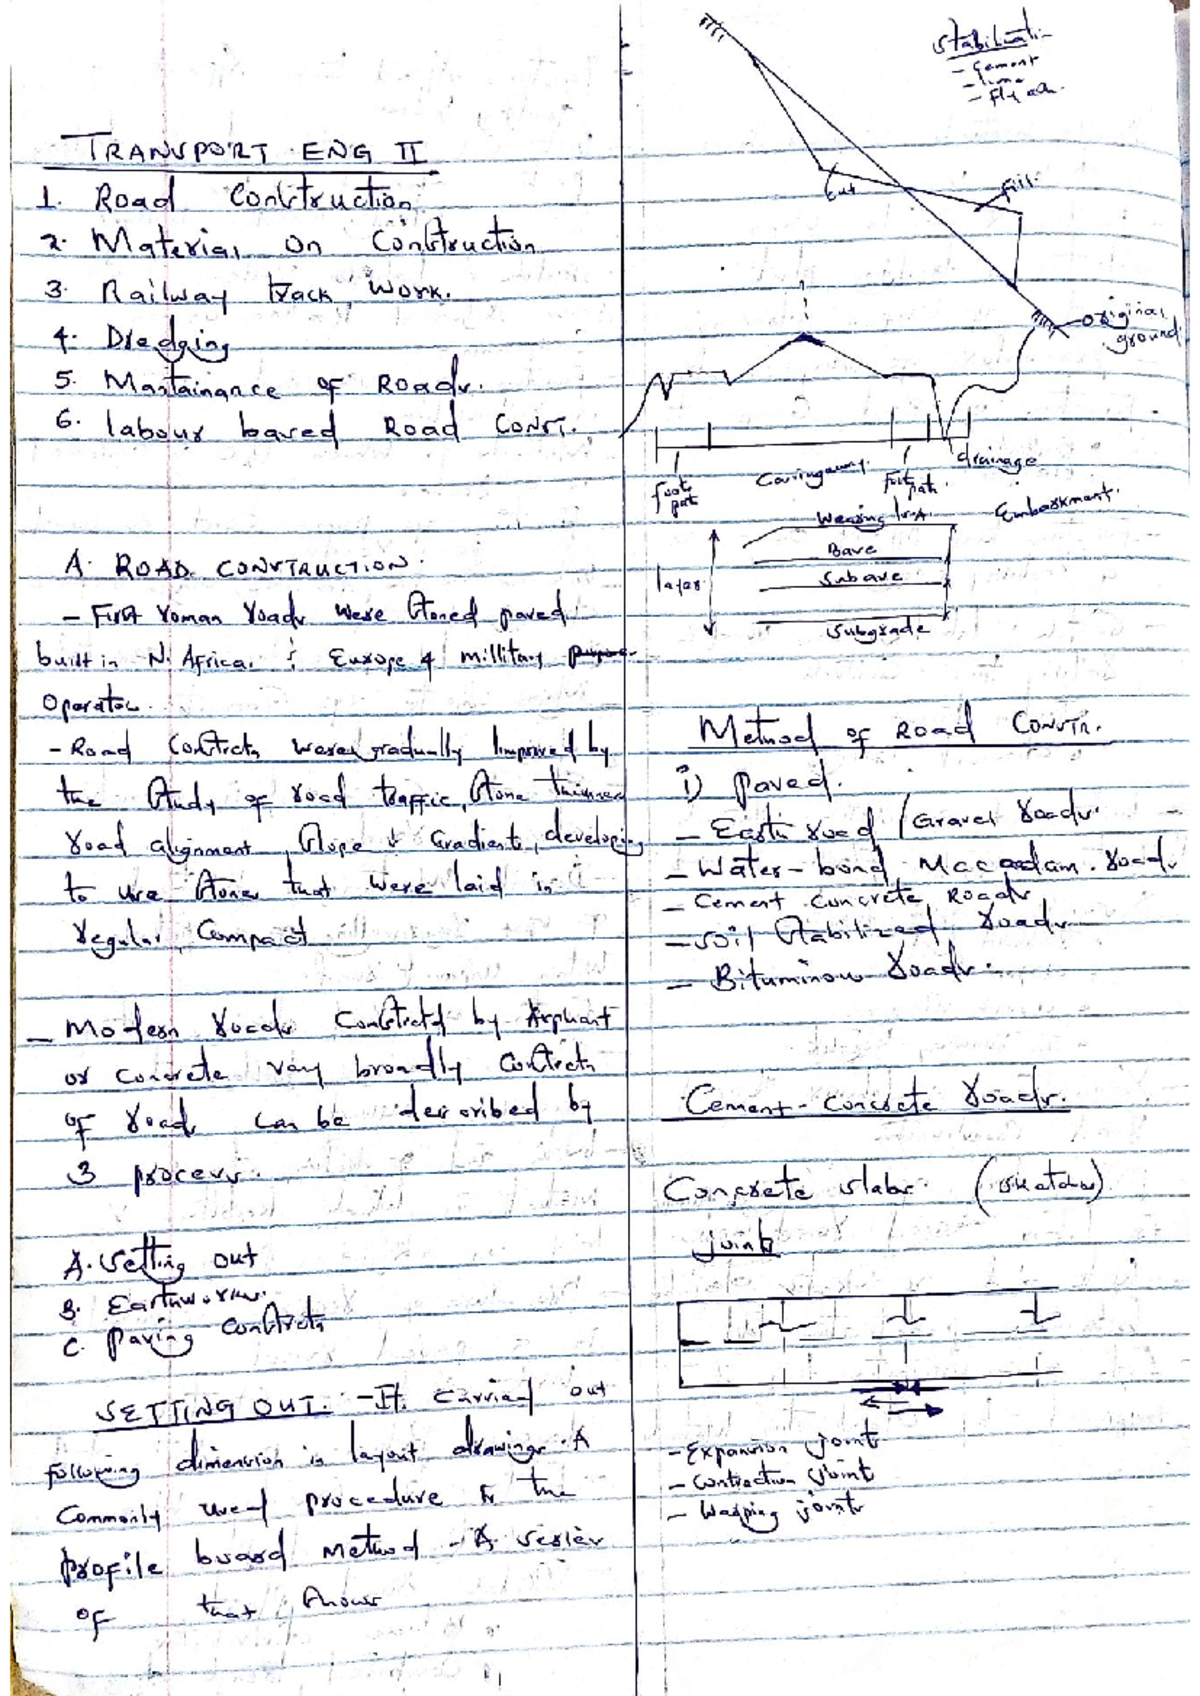 TRANSPORT ENG II
1. Road Construction
2. Material on Construction
3. Railway track work.
4. Dredging
5. Maintainance of Roads.
6. labour based Road Const.
A. ROAD CONSTRUCTION.
- First roman roads were stoned paved
built in N. Africa & Europe 4 millitary
Operation.
- Road Constrctn were gradually Improved by
the study of road traffic, stone thickness
road alignment, slope & Gradients, developing
to use stone that were laid in
regular, Compact
- Modern roads Constrctd by Asphant
or concrete vary broadly Constrctn
of road can be described by
3 process.
A. Setting out
B. Earthworks.
C. Paving Constrctn
SETTING OUT. - It carried out
following dimension in layout drawings. A
Commonly used procedure is the
profile board method - A series
of that shows
Stabilizati
- Cement
- lime
- Fly ash.
Cut
Fill
Original
ground
foot
pat
Carriageway
foot
path
drainage
Embarkment.
Wearing
layer
Base
Subase
Subgrade
Method of Road Constr.
i) Paved.
- Earth road / Gravel roads.
- Water-bond Maccadam. roads
- Cement concrete Roads
- Soil stabilized roads
- Bituminous roads.
Cement-concrete roads.
Concrete slabs. (sketches)
joints
- Expansion joints
- Contraction joint
- Warping joints